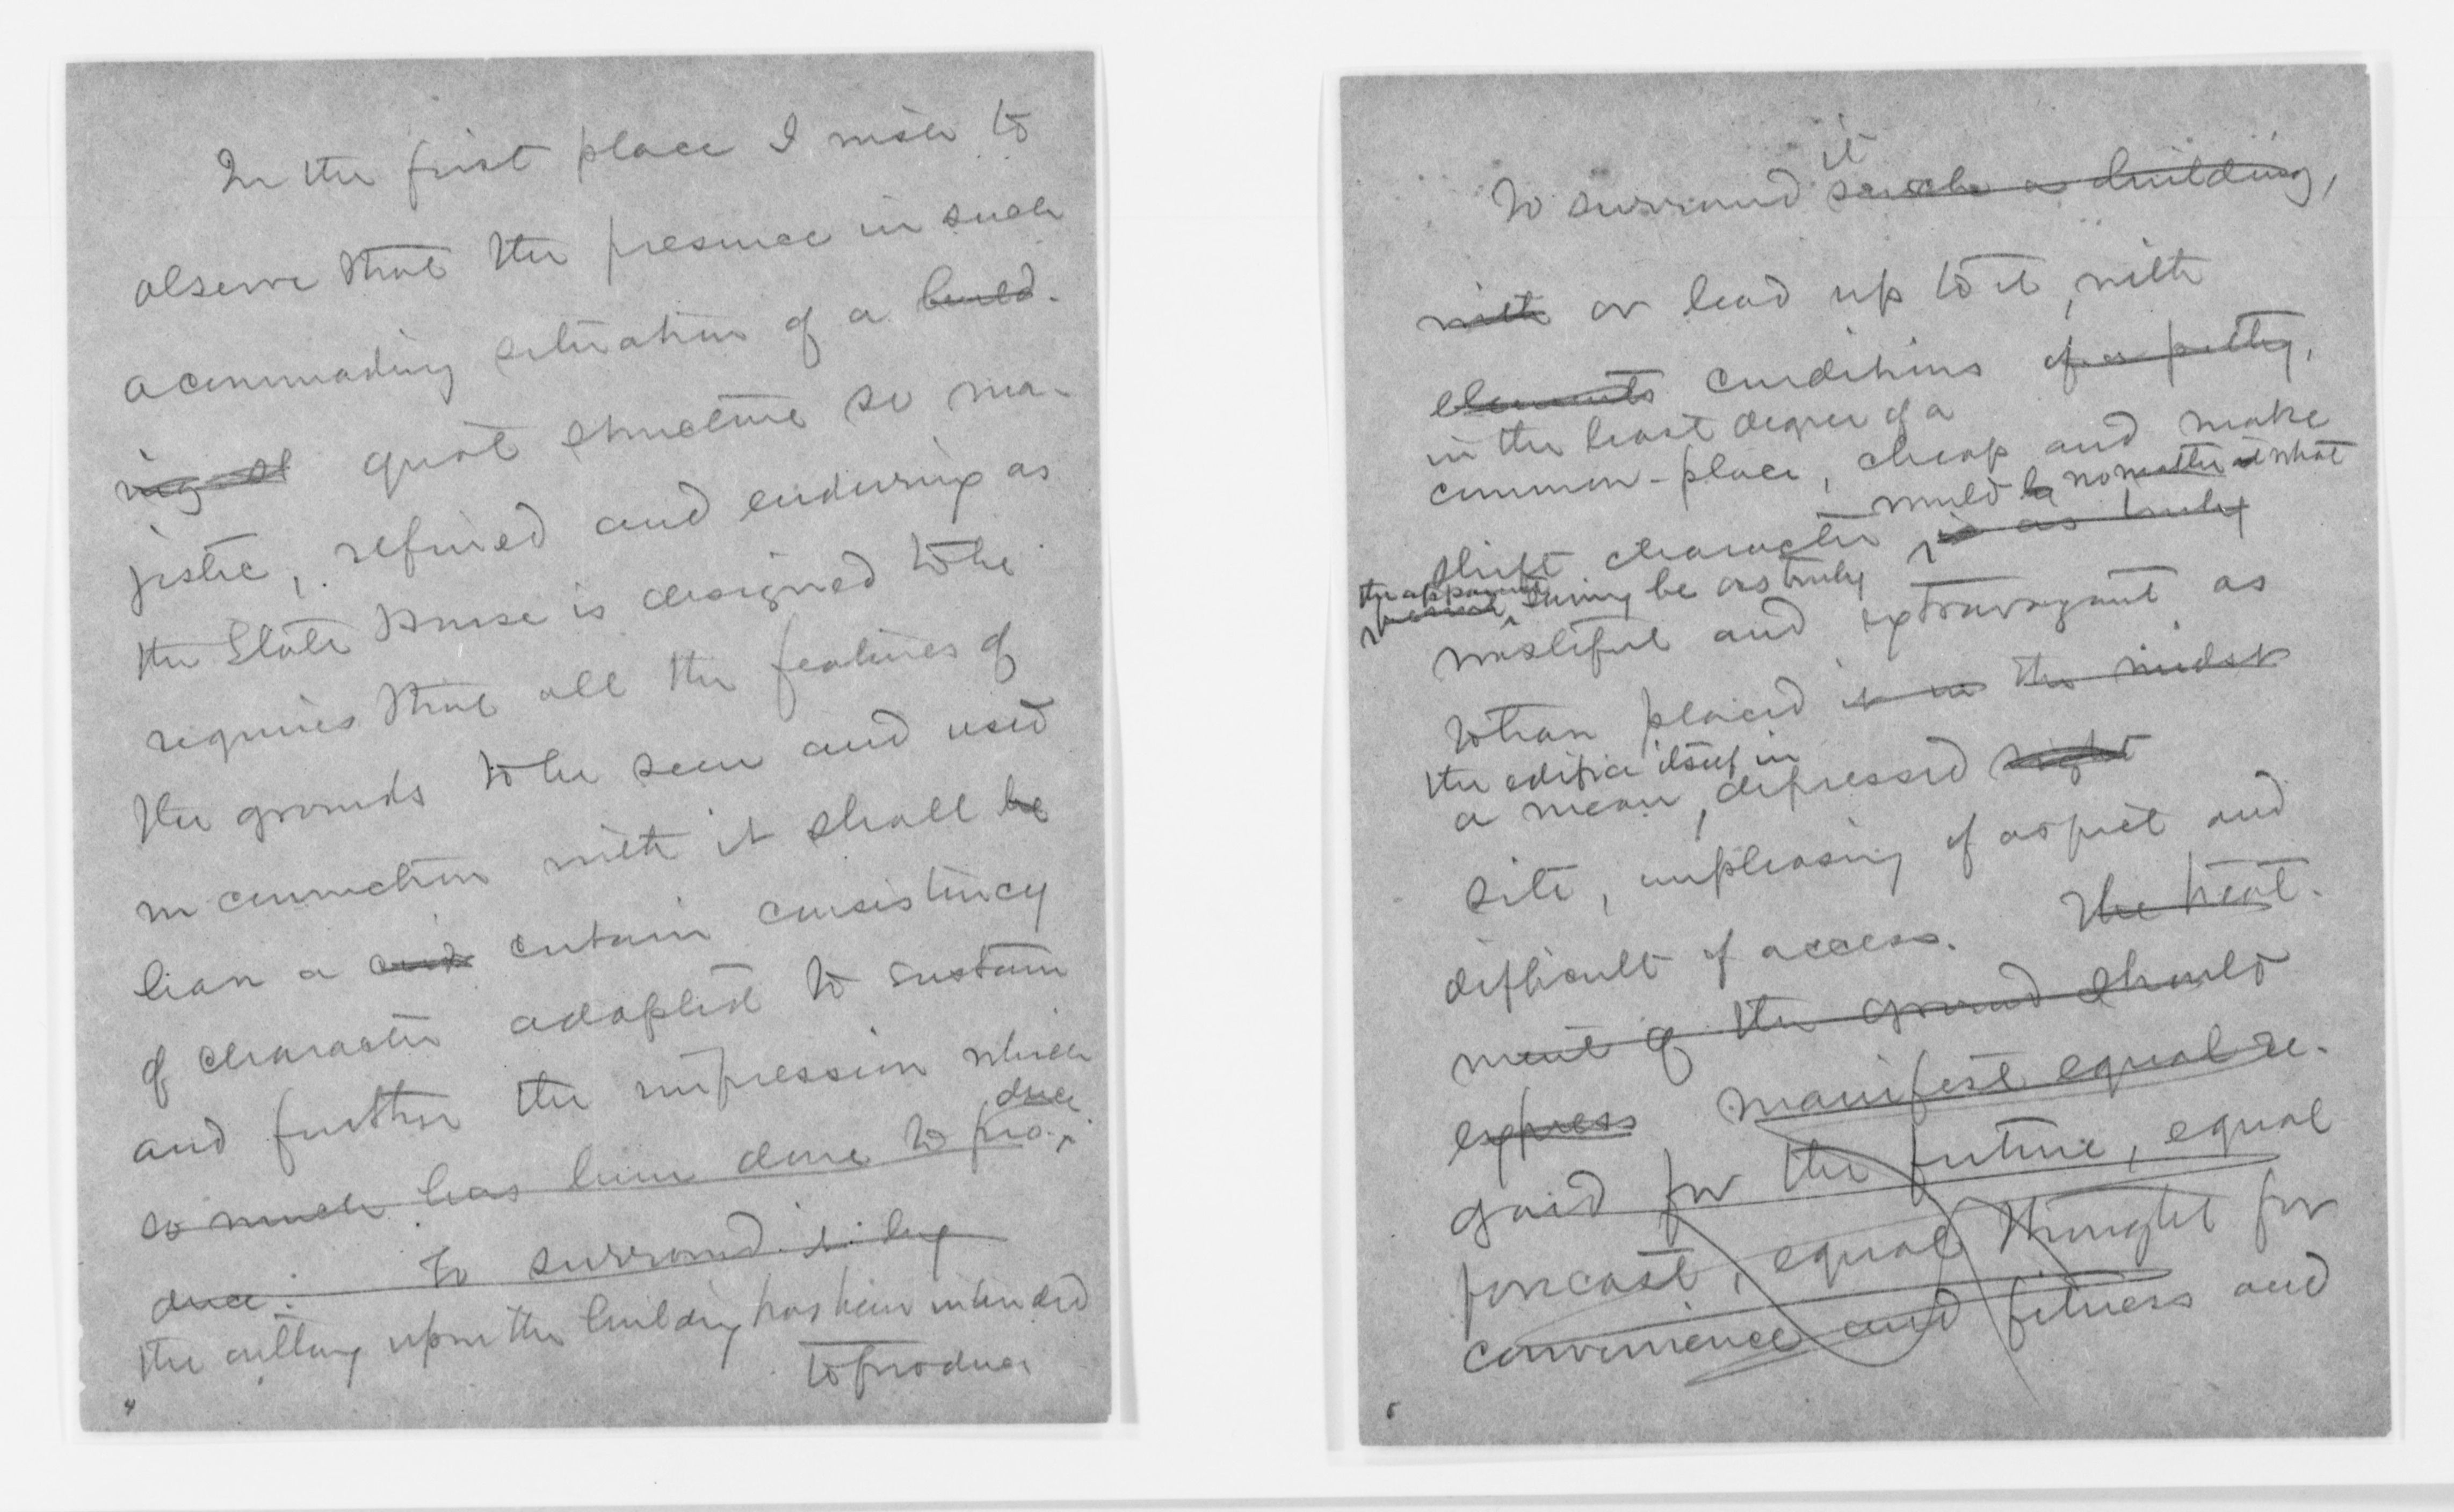 In the first place I wish to
observe that the presence in such
a commanding situation of a build-
ing st great structure so ma-
jestic, refined and enduring as
the State House is designed to be
requires that all the features of
the grounds to be seen and used
in connection with it shall be
bear a certain consistency
of character adapted to sustain
and further the impression which
duce
so much has been done to pro-
duce. To surround it by
the outlay upon the building has been intended
to produce
4
it
To surround such a building,
with or lead up to it, with
elements conditions of a petty,
in the least degree of a
common-place, cheap and make
would be no matter what
shift character, is as truly
the apparent saving be as truly
wasteful and extravagant as
to have placed it in the midst
the edifice itself in
a mean, depressed
site, unpleasing of aspect and
difficult of access. The treat-
ment of the ground should
express manifest equal re-
gard for the future, equal
forecast, equal thought for
convenience and fitness and
5